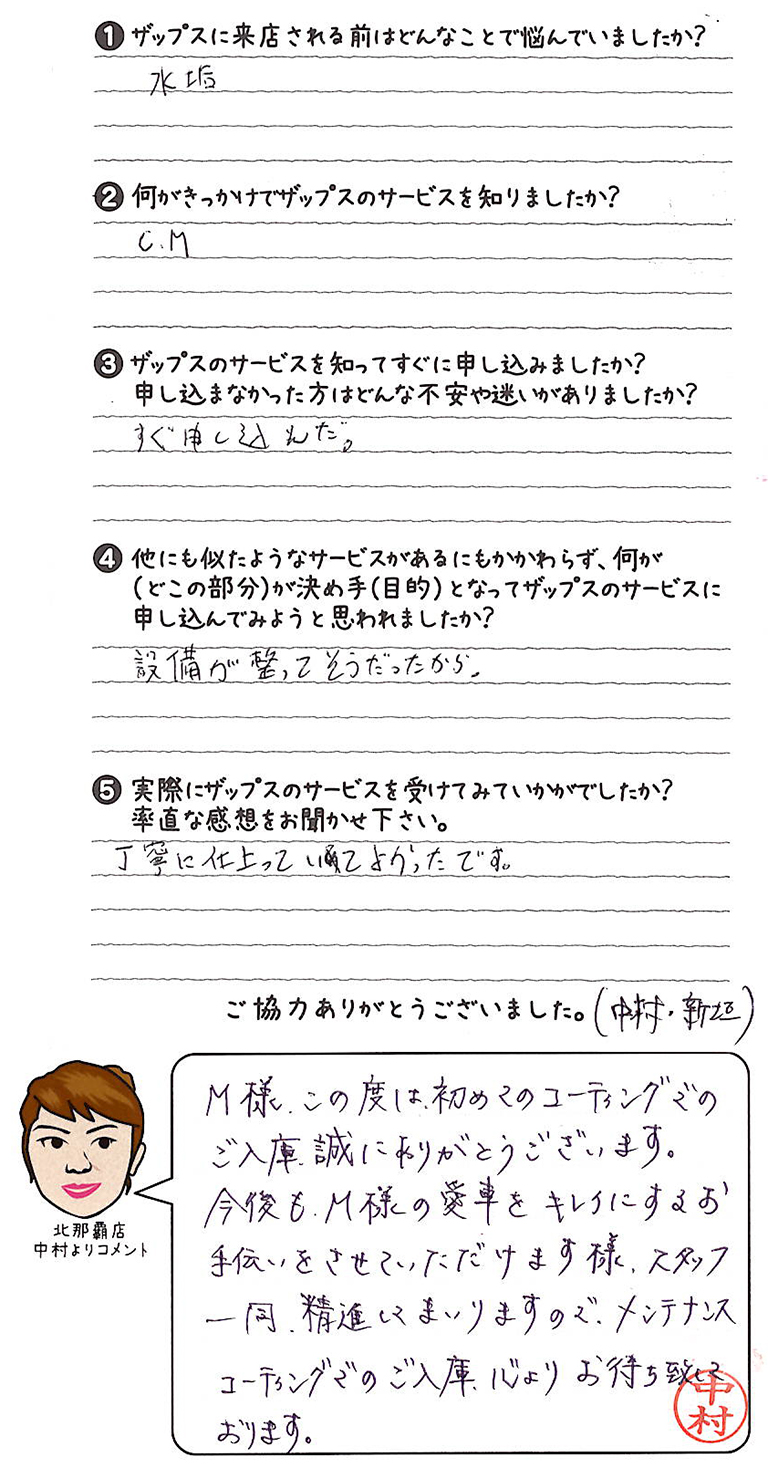 ❶ ザップスに来店される前はどんなことで悩んでいましたか?
水垢
❷ 何がきっかけでザップスのサービスを知りましたか?
C.M
❸ ザップスのサービスを知ってすぐに申し込みましたか?
申し込まなかった方はどんな不安や迷いがありましたか?
すぐ申し込んだ。
❹ 他にも似たようなサービスがあるにもかかわらず、何が
(どこの部分)が決め手(目的)となってザップスのサービスに
申し込んでみようと思われましたか?
設備が整ってそうだったから。
❺ 実際にザップスのサービスを受けてみていかがでしたか?
率直な感想をお聞かせ下さい。
丁寧に仕上ってよかったです。
ご協力ありがとうございました。(中村・新垣)
M様、この度は、初めてのコーティングでの
ご入庫、誠にありがとうございます。
今後も、M様の愛車をキレイにするお
手伝いをさせていただけます様、スタッフ
一同、精進してまいりますので、メンテナンス
コーティングでのご入庫、心よりお待ち致して
おります。
北那覇店
中村よりコメント
中村